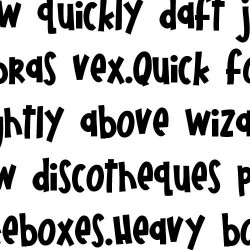 w quickly daft j
bras vex.Quick fo
ghtly above wiza
w discotheques p
eboxes.Heavy bo